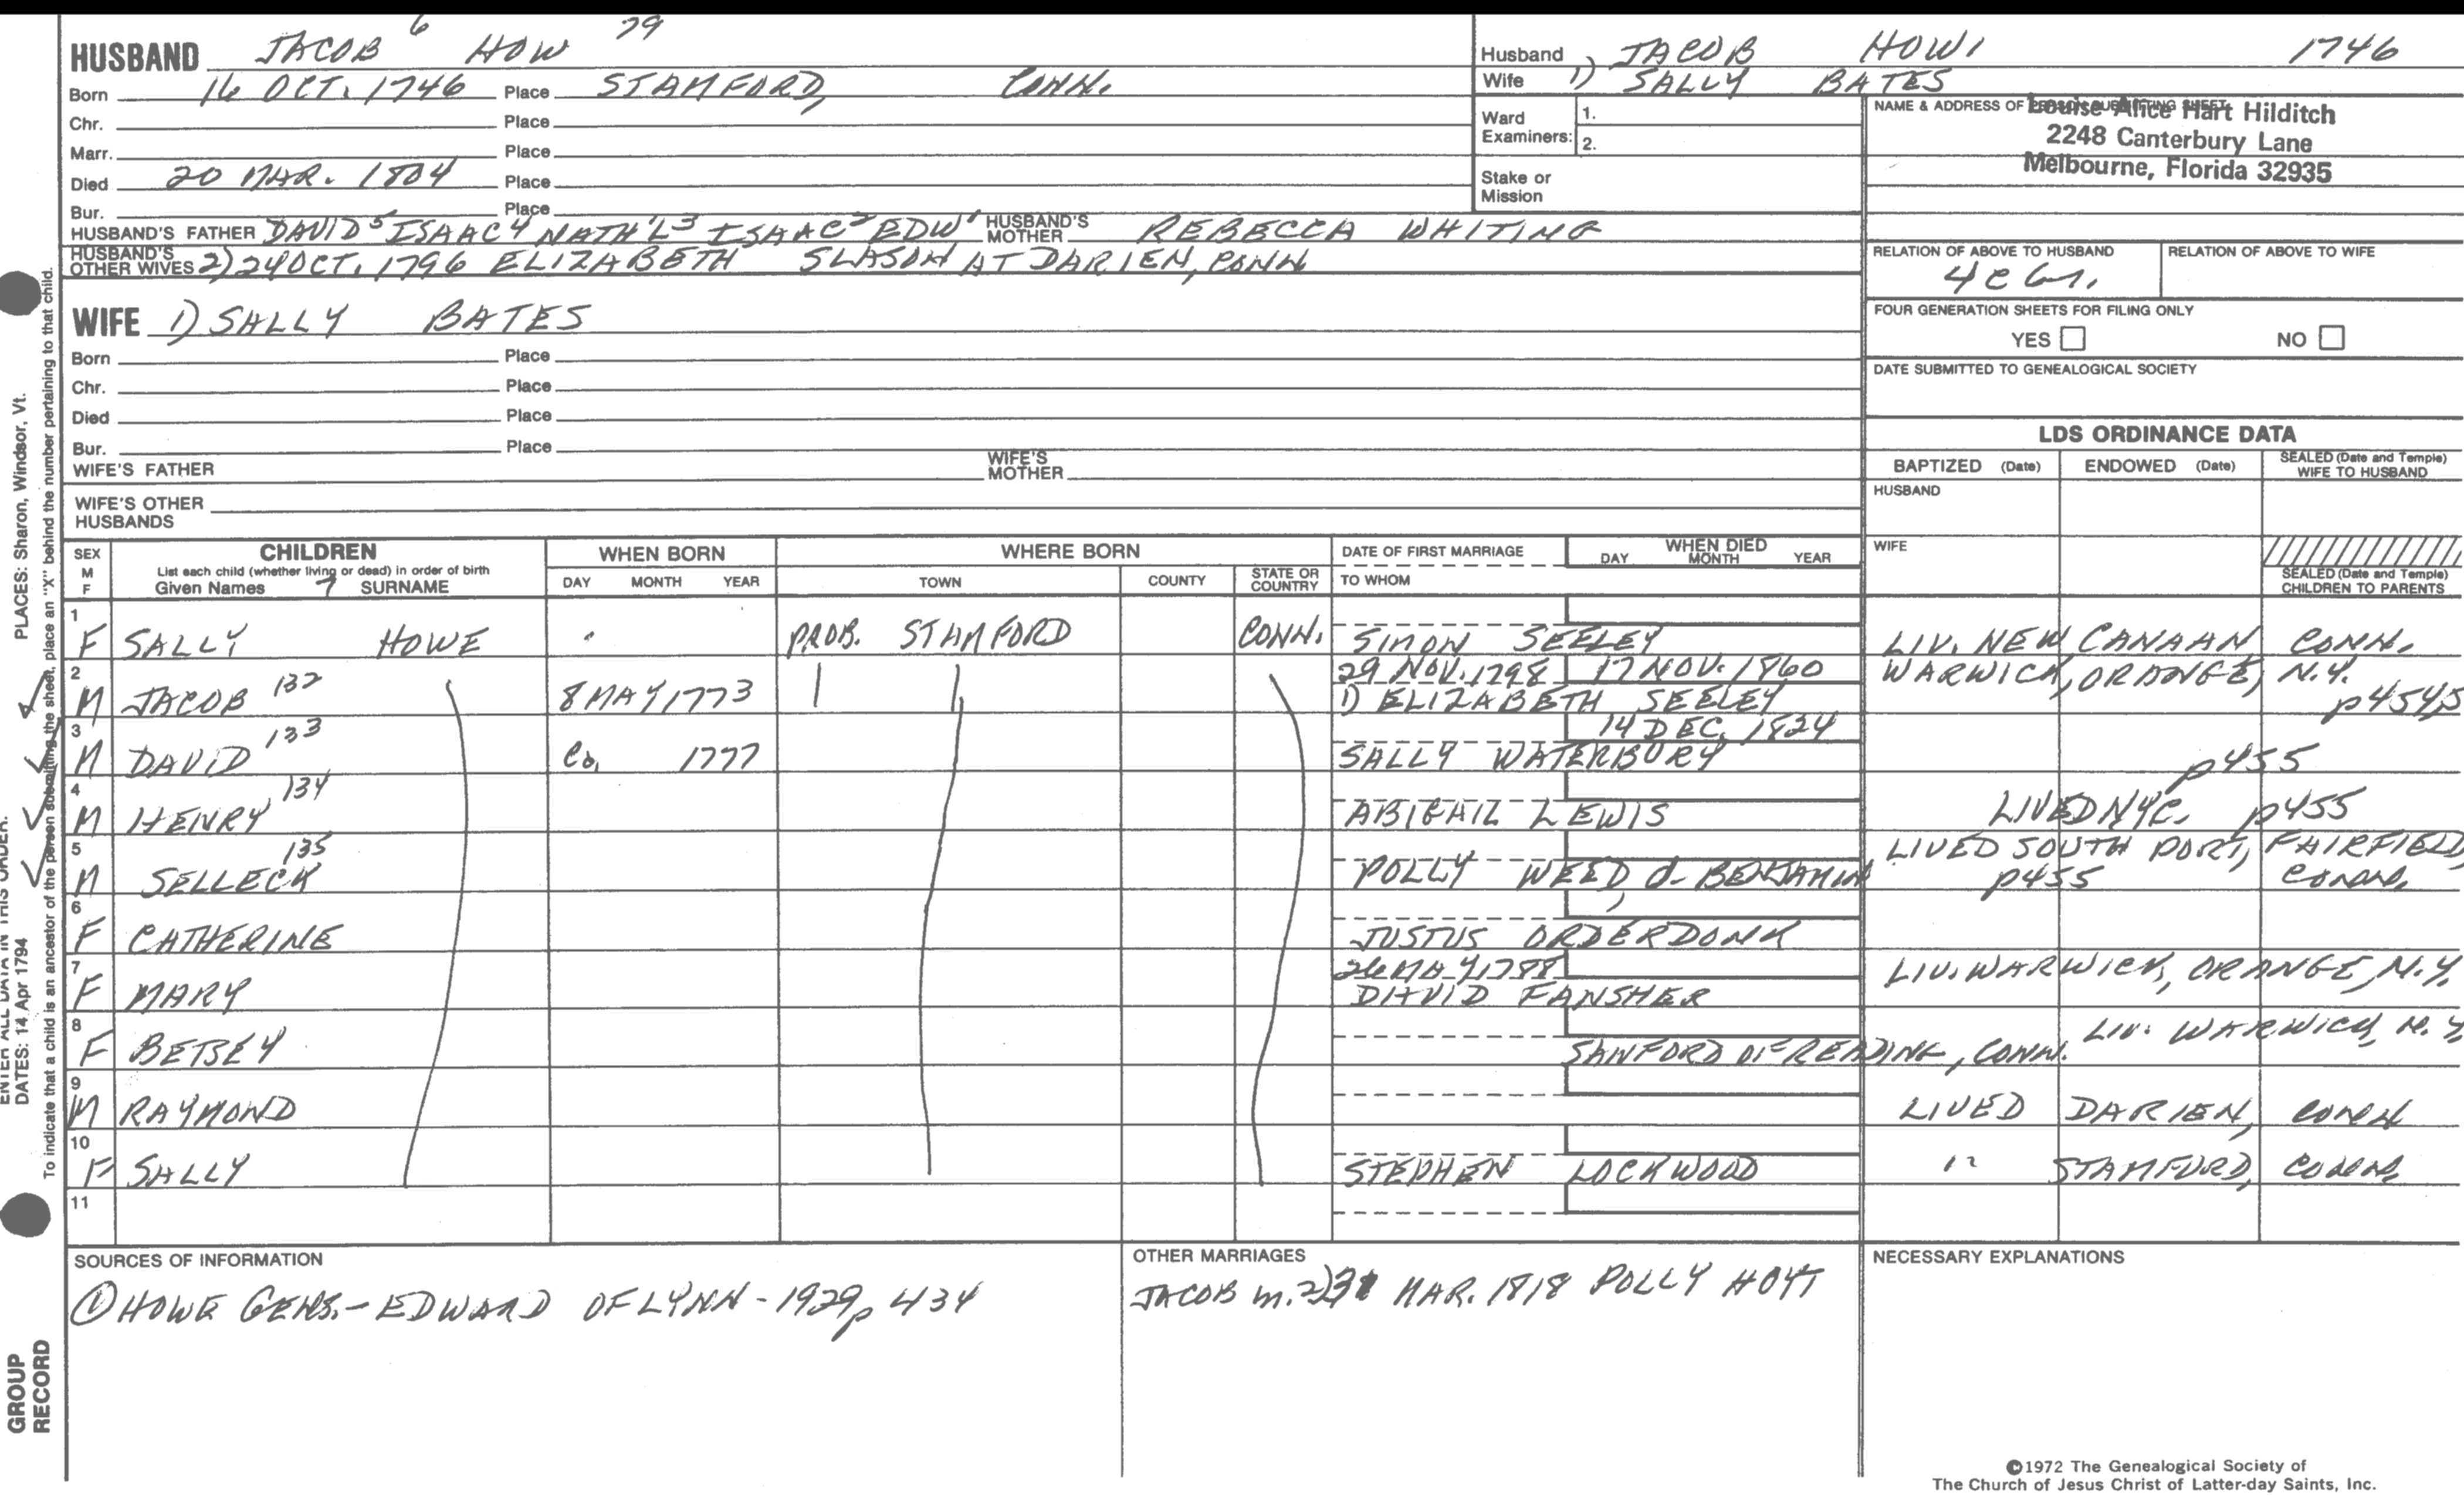 HUSBAND JACOB 6 HOW 79
Born 16 OCT. 1746 Place STAMFORD, CONN.
Chr. Place
Marr. Place
Died 20 MAR. 1804 Place
Bur. Place
HUSBAND'S FATHER DAVID 5 ISAAC 4 NATH'L 3 ISAAC 2 EDW 1 HUSBAND'S MOTHER REBECCA WHITING
HUSBAND'S OTHER WIVES 2) 24 OCT. 1796 ELIZABETH SLASON AT DARIEN, CONN
WIFE 1) SALLY BATES
Born Place
Chr. Place
Died Place
Bur. Place
WIFE'S FATHER WIFE'S MOTHER
WIFE'S OTHER HUSBANDS
Husband JACOB HOW 1746
Wife 1) SALLY BATES
Ward Examiners: 1.
2.
Stake or Mission
NAME & ADDRESS OF PERSON SUBMITTING SHEET
Louise Alice Hart Hilditch
2248 Canterbury Lane
Melbourne, Florida 32935
RELATION OF ABOVE TO HUSBAND RELATION OF ABOVE TO WIFE
FOUR GENERATION SHEETS FOR FILING ONLY
YES NO
DATE SUBMITTED TO GENEALOGICAL SOCIETY
LDS ORDINANCE DATA
BAPTIZED (Date) ENDOWED (Date) SEALED (Date and Temple) WIFE TO HUSBAND
HUSBAND
WIFE
SEALED (Date and Temple) CHILDREN TO PARENTS
SEX M F CHILDREN WHEN BORN WHERE BORN DATE OF FIRST MARRIAGE WHEN DIED
List each child (whether living or dead) in order of birth DAY MONTH YEAR
Given Names 7 SURNAME DAY MONTH YEAR TOWN COUNTY STATE OR COUNTRY TO WHOM
1 F SALLY HOWE PROB. STAMFORD CONN. SIMON SEELEY LIV. NEW CANAAN CONN.
2 29 NOV. 1798 17 NOV. 1860 WARWICK, ORANGE, N.Y.
M JACOB 132 8 MAY 1773 1) ELIZABETH SEELEY p454,5
3 14 DEC. 1824
M DAVID 133 Ca, 1777 SALLY WATERBURY p455
4 M HENRY 134 ABIGAIL LEWIS LIVED NYC. p455
5 M SELLECK 135 POLLY WEED d- BENJAMIN LIVED SOUTH PORT, FAIRFIELD
p455 CONN.
6 F CATHERINE JUSTUS ORDERDONK
7 26 MAY 1788 LIV. WARWICK, ORANGE, N.Y.
F MARY DAVID FANSHER
8 F BETSEY SANFORD OF READING, CONN. LIV. WARWICK, N.Y
9 M RAYMOND LIVED DARIEN, CONN
10 F SALLY STEPHEN LOCKWOOD " STAMFORD, CONN.
11
SOURCES OF INFORMATION
① HOWE GENS. - EDWARD OF LYNN - 1929, p 434
OTHER MARRIAGES
JACOB m. 2) 31 MAR. 1818 POLLY HOYT
NECESSARY EXPLANATIONS
©1972 The Genealogical Society of
The Church of Jesus Christ of Latter-day Saints, Inc.
PLACES: Sharon, Windsor, Vt.
ENTER ALL DATA IN THIS ORDER:
DATES: 14 Apr 1794
To indicate that a child is an ancestor of the person submitting the sheet, place an "X" behind the number pertaining to that child.
GROUP
RECORD